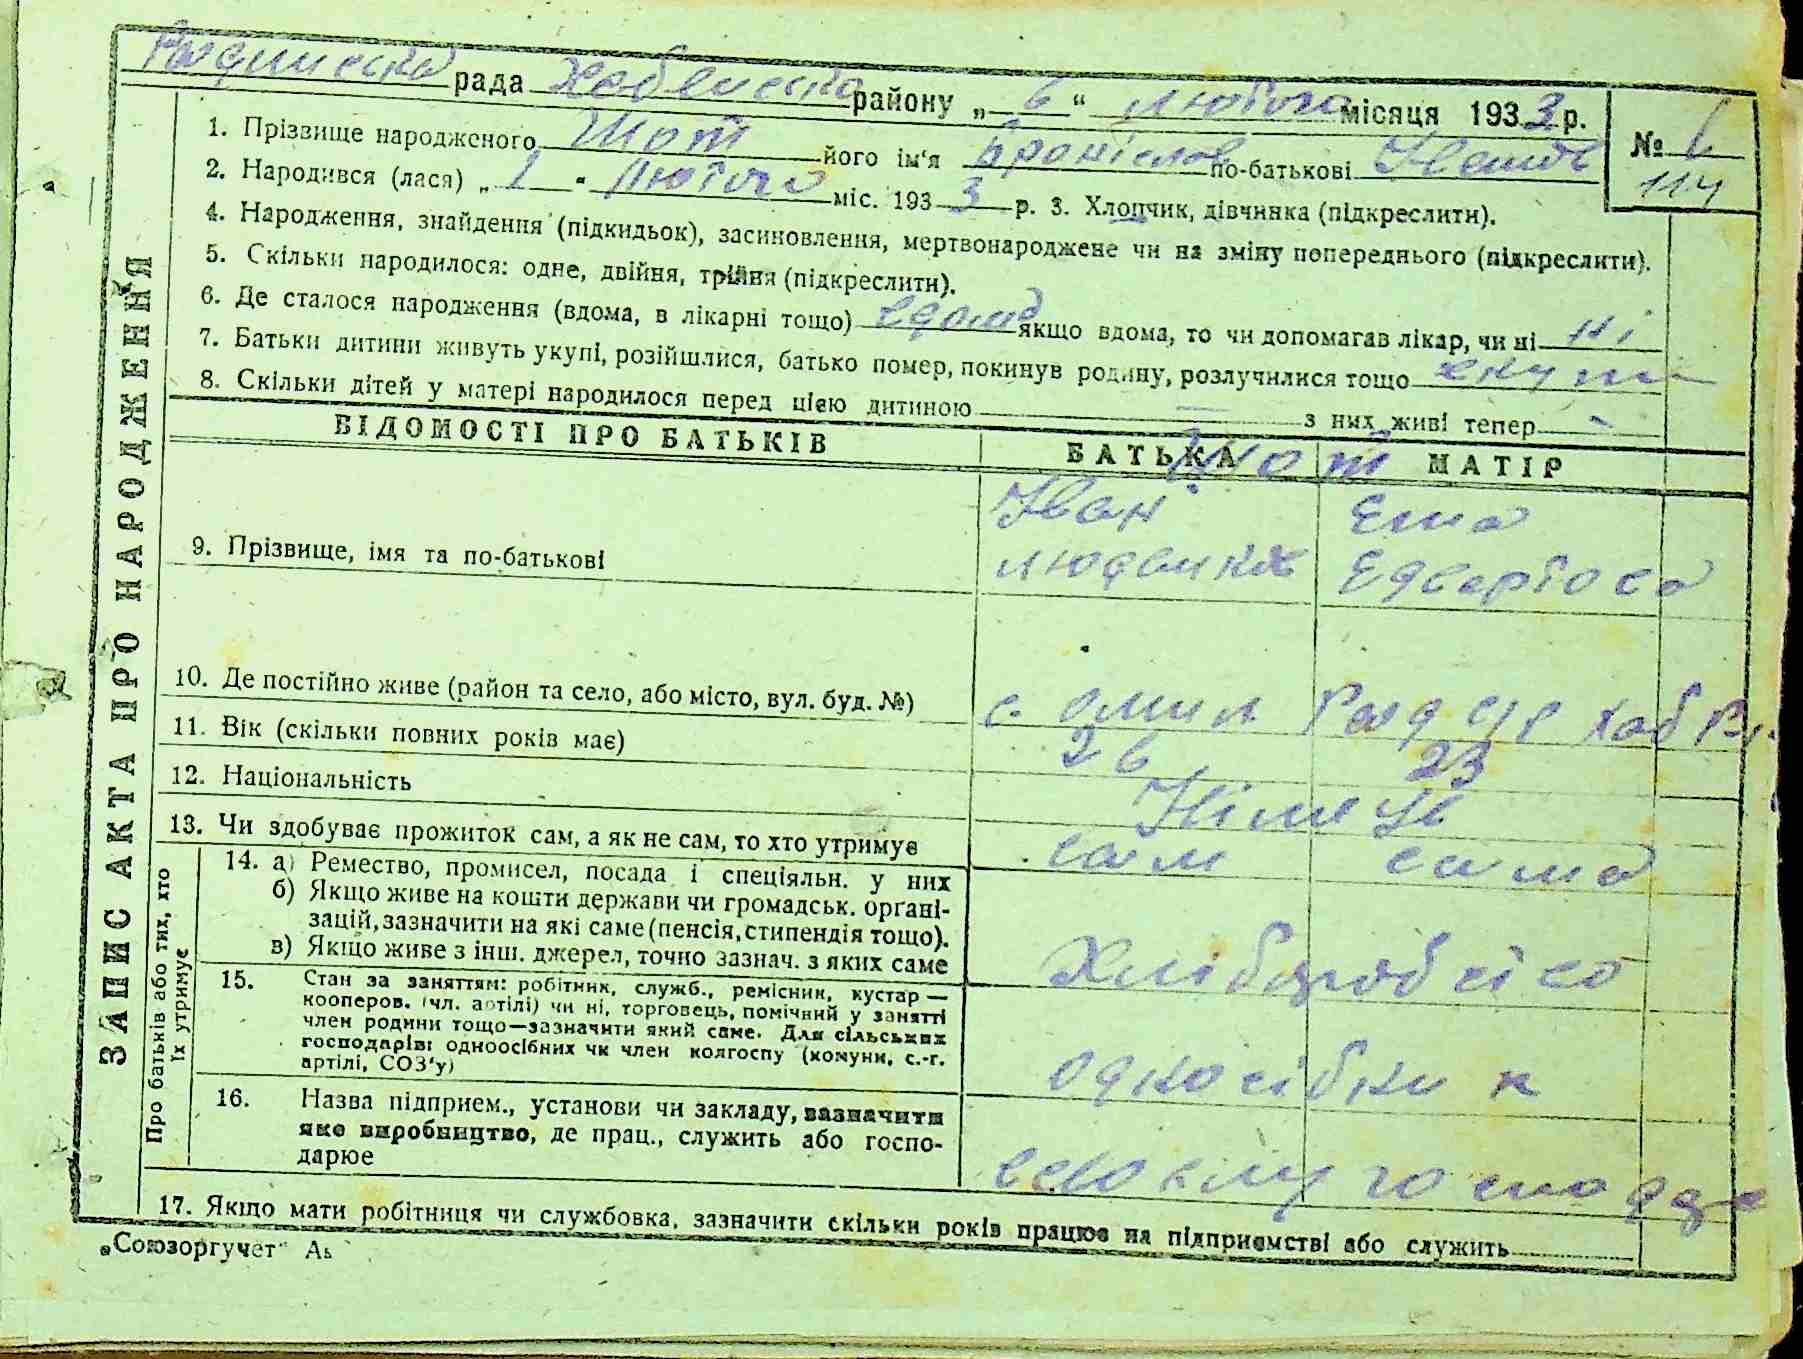 рада Хабенська району „ 6 “ лютого місяця 1933 р.
№ 1
114
1. Прізвище народженого Шот його ім‘я Броніслов по-батькові Іванов
2. Народився (лася) „ 1 “ Лютого міс. 193 3 р. 3. Хлопчик, дівчинка (підкреслити).
4. Народження, знайдення (підкидьок), засиновлення, мертвонароджене чи на зміну попереднього (підкреслити).
5. Скільки народилося: одне, двійня, трійня (підкреслити).
6. Де сталося народження (вдома, в лікарні тощо) вдома якщо вдома, то чи допомагав лікар, чи ні ні
7. Батьки дитини живуть укупі, розійшлися, батько помер, покинув родину, розлучилися тощо вкупі
8. Скільки дітей у матері народилося перед цією дитиною — з них живі тепер -
ВІДОМОСТІ ПРО БАТЬКІВ БАТЬКА МАТІР
Шот
9. Прізвище, імя та по-батькові Іван Ема
Людвиков Едвертова
10. Де постійно живе (район та село, або місто, вул. буд. №) с. Омил
11. Вік (скільки повних років має) 26 23
12. Національність Німець
13. Чи здобуває прожиток сам, а як не сам, то хто утримує сам сама
14. а) Ремество, промисел, посада і спеціяльн. у них
б) Якщо живе на кошти держави чи громадськ. орґані-
зацій, зазначити на які саме (пенсія, стипендія тощо).
в) Якщо живе з інш. джерел, точно зазнач. з яких саме
Хліборобство
15. Стан за заняттям: робітник, служб., ремісник, кустар —
кооперов. (чл. артілі) чи ні, торговець, помічний у занятті
член родини тощо—зазначити який саме. Для сільських
господарів: одноосібник чи член колгоспу (комуни, с.-г.
артілі, СОЗ‘у)
односібник
16. Назва підприєм., установи чи закладу, зазначити
яке виробництво, де прац., служить або госпо-
дарює
в своєму господар
17. Якщо мати робітниця чи службовка, зазначити скільки років працює на підприємстві або служить
„Союзоргучет“
ЗАПИС АКТА ПРО НАРОДЖЕННЯ
Про батьків або тих, хто
їх утримує